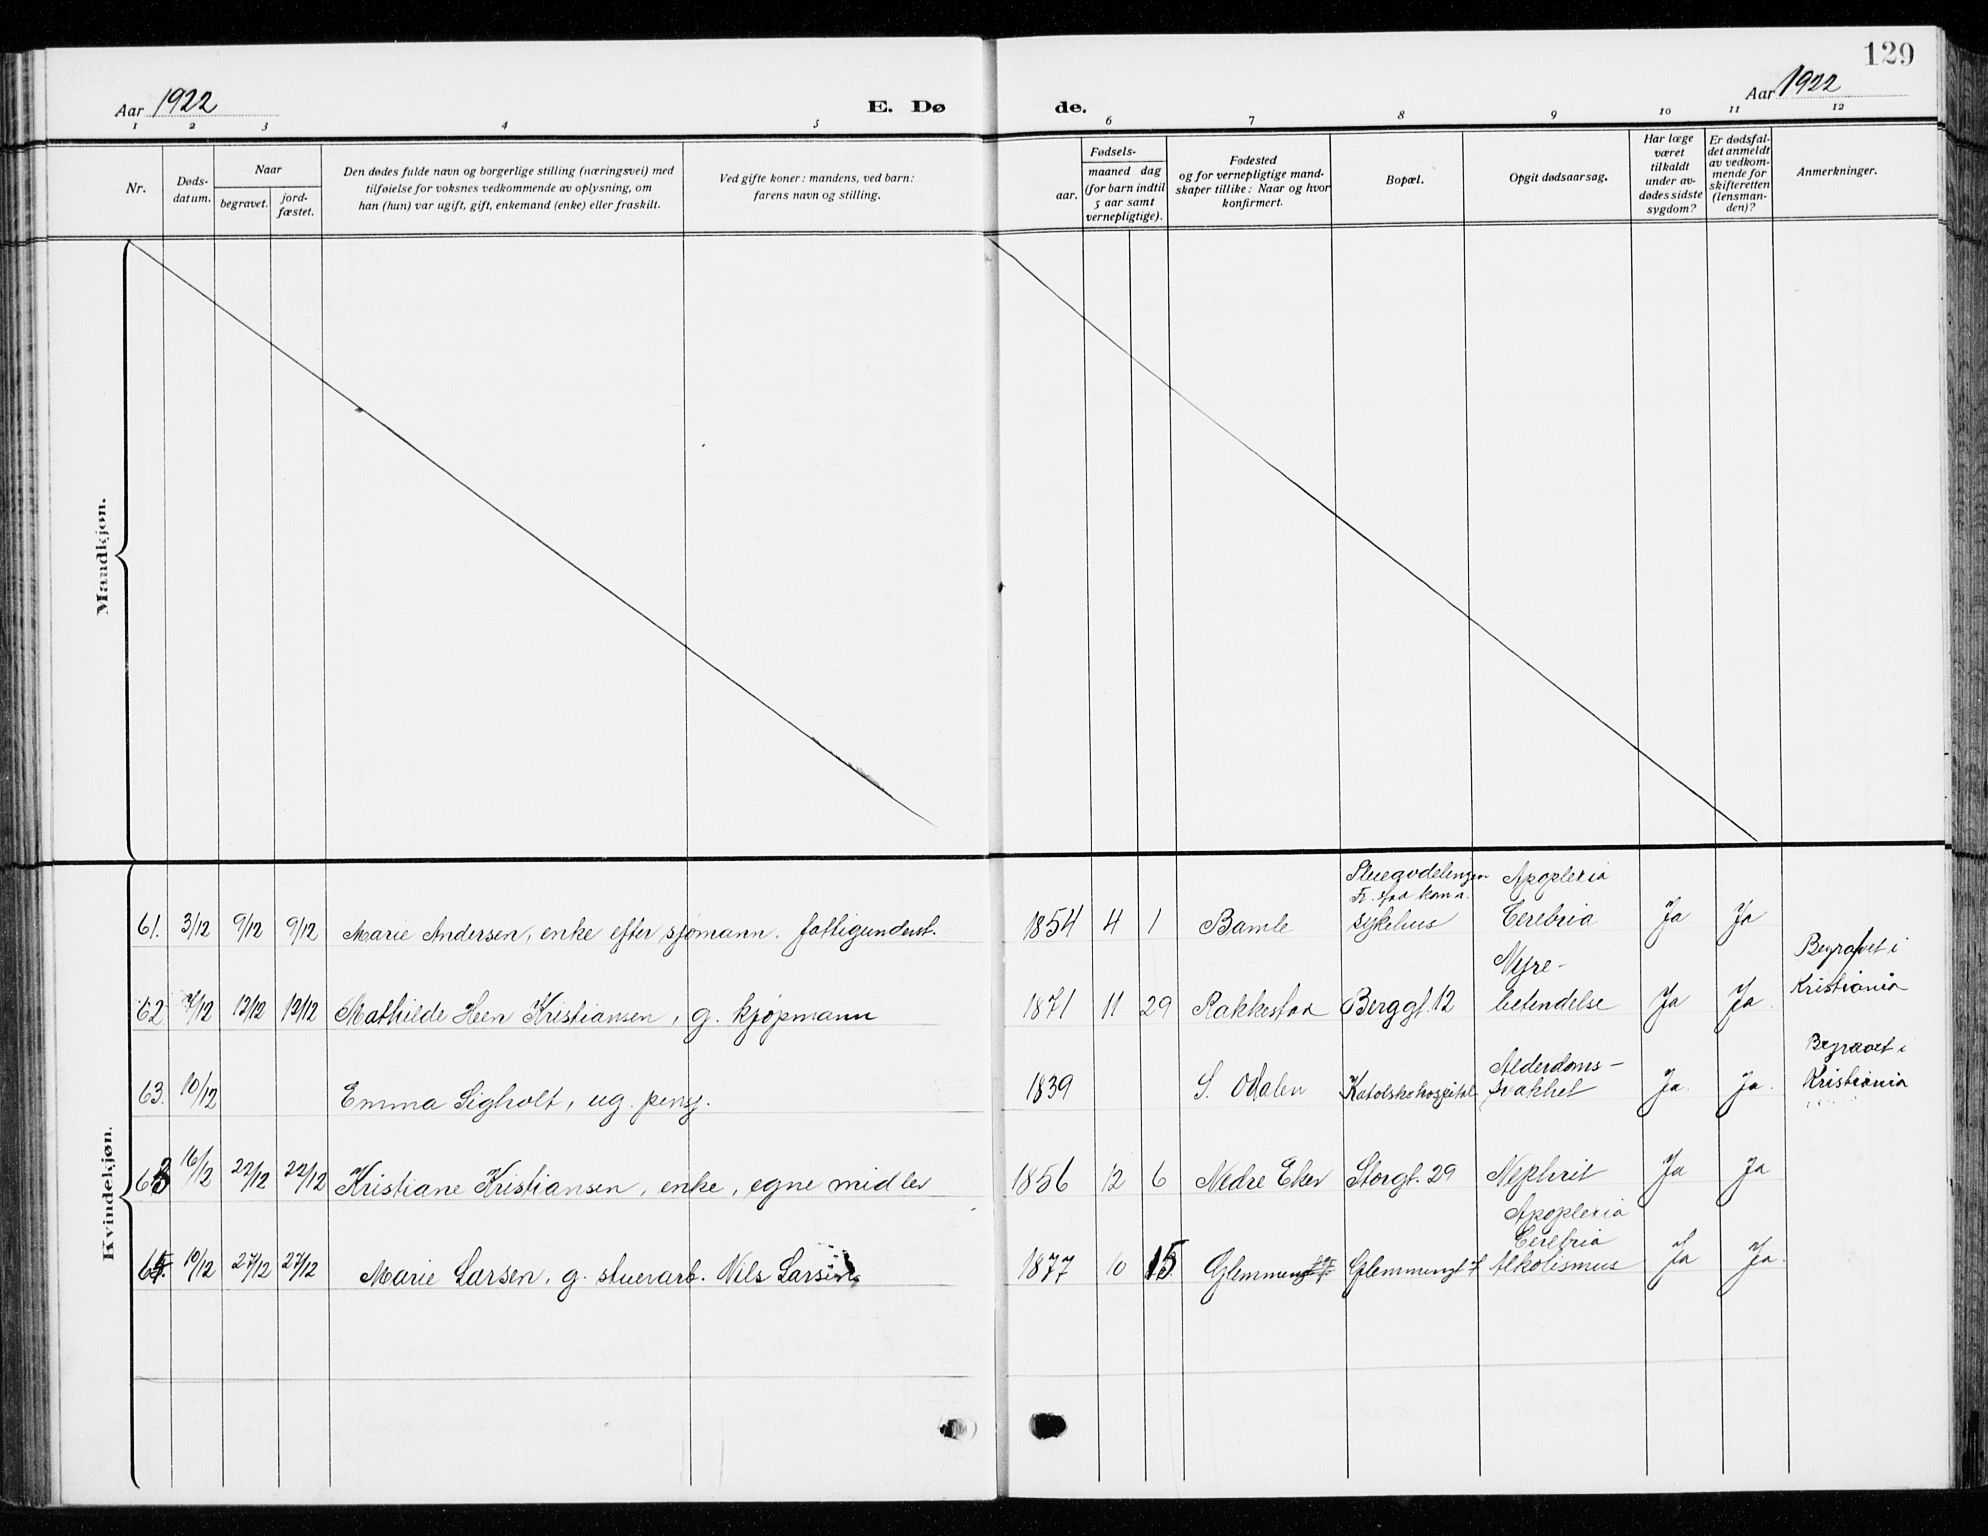 129
Aar 1922
E. Dø
de.
Aar 1922
1 2 3 4 5 6 7 8 9 10 11 12
Nr.
Døds-
datum.
Naar
begravet.
jord-
fæstet.
Den dødes fulde navn og borgerlige stilling (næringsvei) med
tilføielse for voksnes vedkommende av oplysning, om
han (hun) var ugift, gift, enkemand (enke) eller fraskilt.
Ved gifte koner: mandens, ved barn:
farens navn og stilling.
Fødsels-
aar.
maaned dag
(for barn indtil
5 aar samt
vernepligtige).
Fødested
og for vernepligtige mand-
skaper tillike: Naar og hvor
konfirmert.
Bopæl.
Opgit dødsaarsag.
Har læge
været
tilkaldt
under av-
dødes sidste
sygdom?
Er dødsfal-
det anmeldt
av vedkom-
mende for
skifteretten
(lensman-
den)?
Anmerkninger.
Mandkjøn.
Kvindekjøn.
Apoplexia
61. 3/12 9/12 9/12 Marie Andersen, enke efter sjømann. fattigunderst. 1854 4 1 Bamle sykehus Cerebria Ja Ja
Nyre-
Begravet i
62 7/12 12/12 12/12 Mathilde Heen Kristiansen, g. kjøpmann 1871 11 29 Rakkestad Berggt. 12 betendelse Ja Ja.
Kristiania
Alderdoms-
Begravet i
63. 10/12 Emma Sigholt, ug. pensj. 1839 S. Odalen Katolske hospital svakhet Ja. Ja.
Kristiania
63 16/12 22/12 22/12 Kristiane Kristiansen, enke, egne midler 1856 12 6 Nedre Eker Storgt. 29 Nephrit Ja Ja
Apoplexia
Cerebria
19/12 27/12 27/12 Marie Larsen, g. stuerarb. Nils Larsen 1877 10 15 Glemmen Alkolismus Ja Ja.